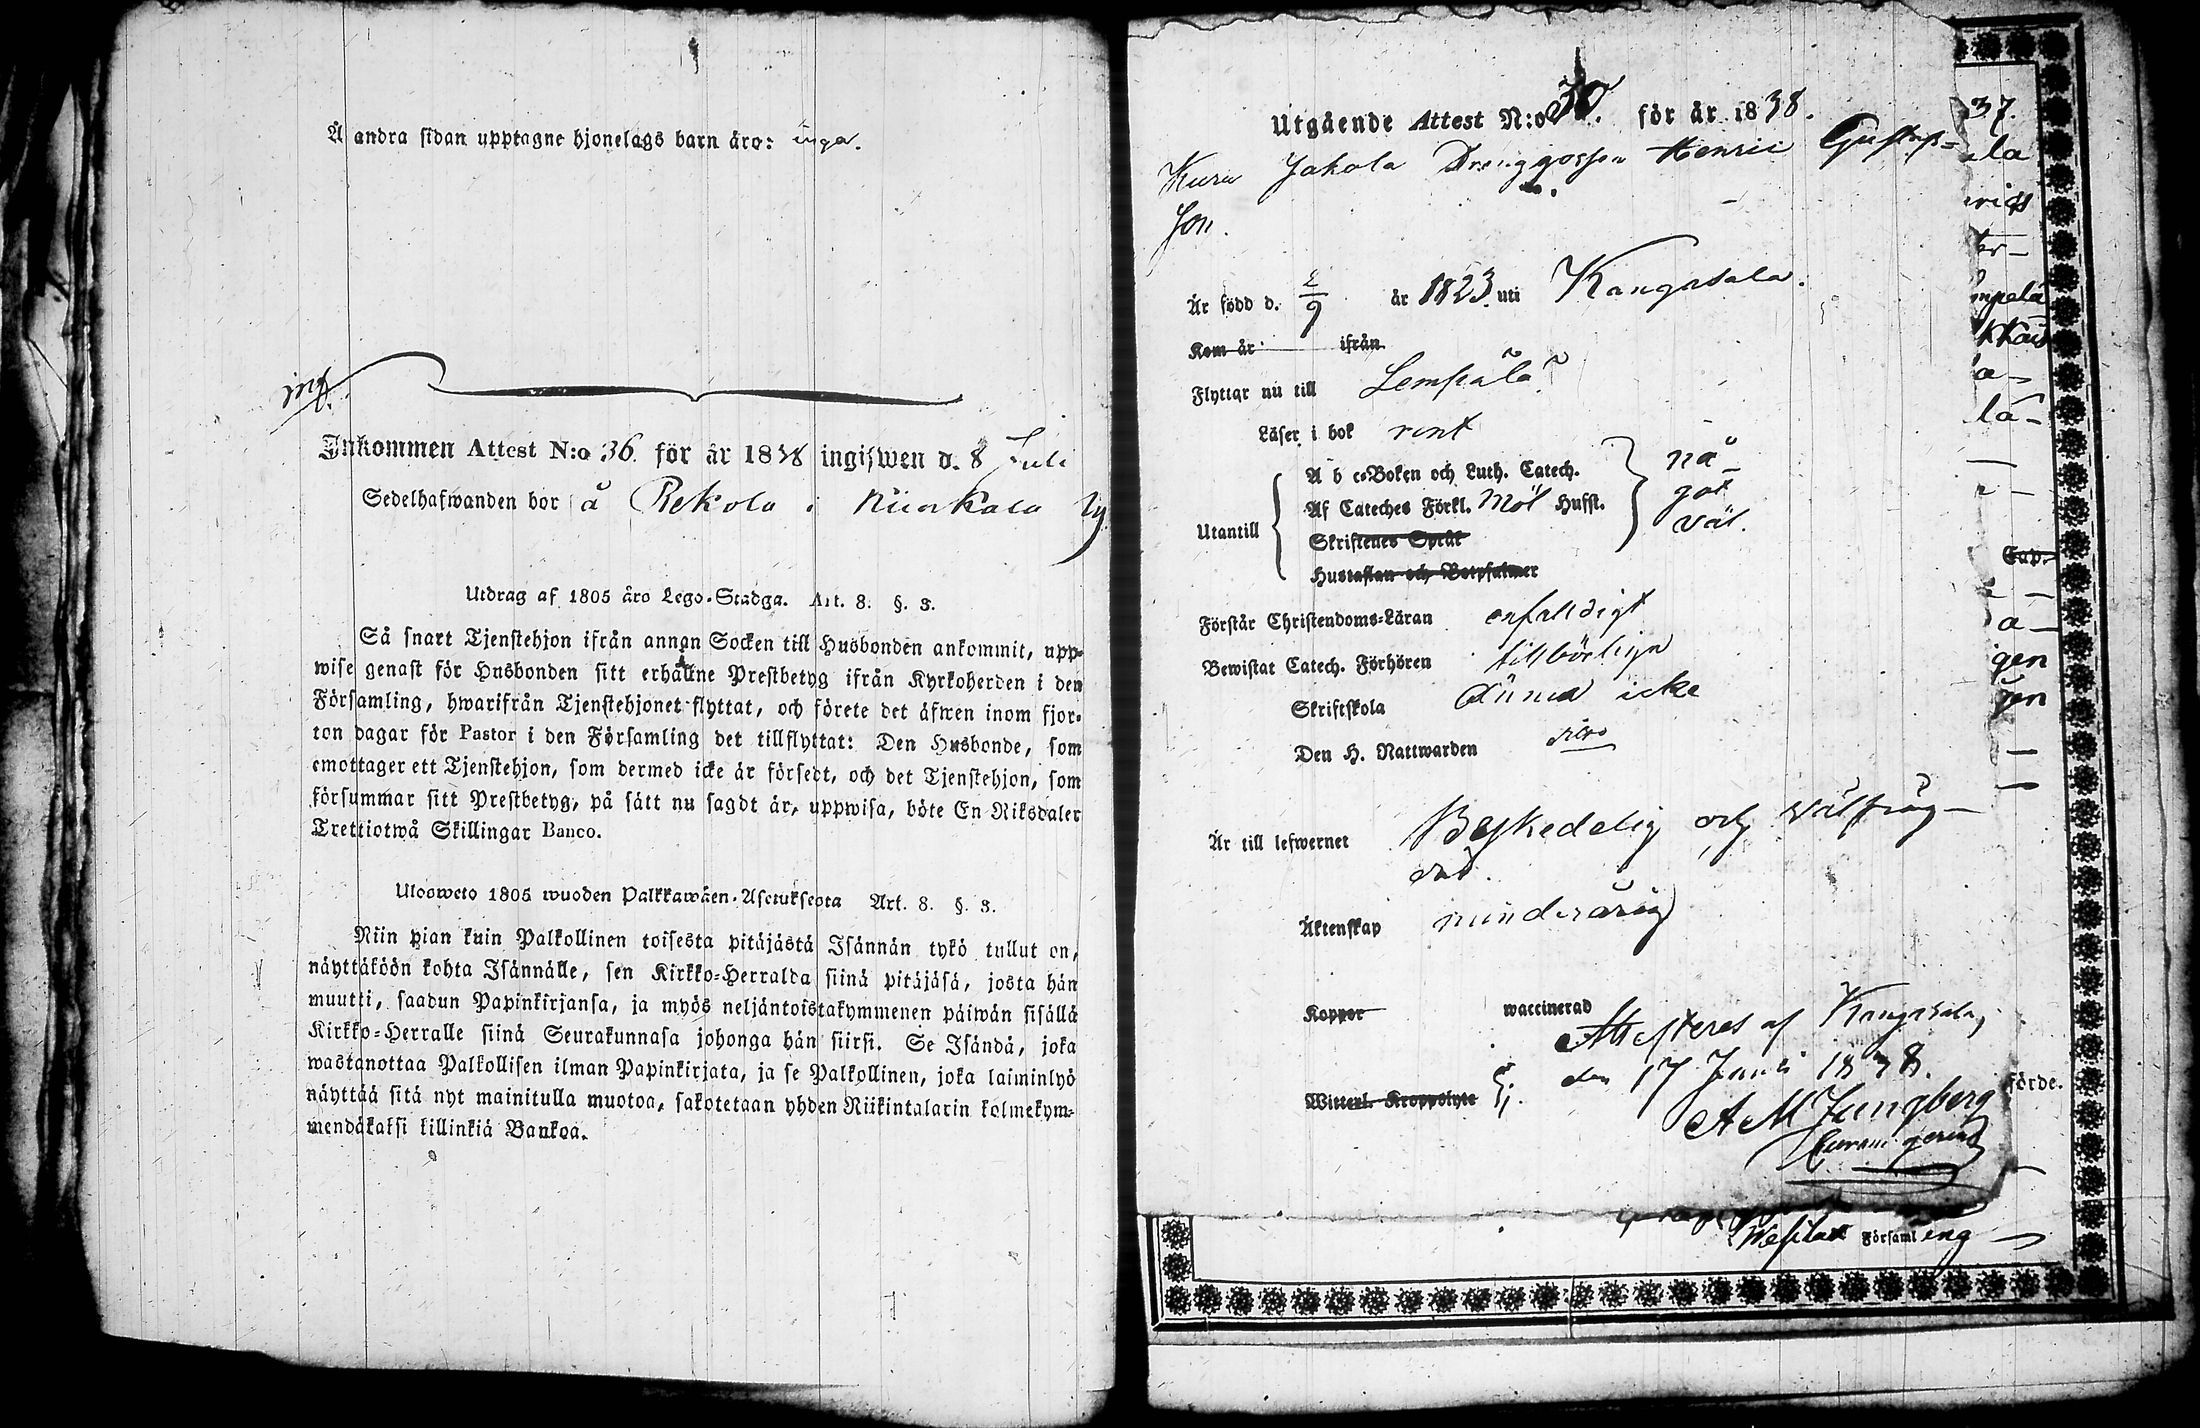 Å andra sidan upptagne hjonelags barn äro: inga.
Inkommen Attest N:o 36 för år 1838 ingifwen d. 8 Juli
Sedelhafwanden bor å Rekola i
Utdrag af 1805 års Lego-Stadga. Art. 8. §. 3.
Så snart Tjenstehjon ifrån annan Socken till Husbonden ankommit, upp-
wise genast för Husbonden sitt erhållne Prestbetyg ifrån Kyrkoherden i den
Församling, hwarifrån Tjenstehjonet flyttat, och förete det äfwen inom fjor-
ton dagar för Pastor i den Församling det tillflyttat: Den Husbonde, som
emottager ett Tjenstehjon, som dermed icke är försedt, och det Tjenstehjon, som
försummar sitt Prestbetyg, på sätt nu sagdt är, uppwisa, böte En Riksdaler
Trettiotwå Skillingar Banco.
Ulosweto 1805 wuoden Palkkawäen-Asetuksesta Art. 8. §. 3.
Niin pian kuin Palkollinen toisesta pitäjästä Isännän tykö tullut on,
näyttäköön kohta Isännälle, sen Kirkko-Herralda siinä pitäjäsä, josta hän
muutti, saadun Papinkirjansa, ja myös neljäntoistakymmenen päiwän sisällä
Kirkko-Herralle siinä Seurakunnasa johonga hän siirsi. Se Isändä, joka
wastanottaa Palkollisen ilman Papinkirjata, ja se Palkollinen, joka laiminlyö
näyttää sitä nyt mainitulla muotoa, sakotetaan yhden Riikintalarin kolmekym-
mendäkaksi killinkiä Bankoa.
Utgående Attest N:o 30. för år 1838.
Jakola Drenggossen Henric Gustafs-
son.
Är född d. 2/9 år 1823 uti Kangasala.
Kom år ifrån
Flyttar nu till Lempälä
Läser i bok rent
Utantill
A b c-Boken och Luth. Catech.
Af Cateches Förkl. Möl Hufst.
Skriftenes Språk
Hustaflan och Botpsalmer
nå-
got
väl.
Förstår Christendoms-Läran enfaldigt
Bewistat Catech. Förhören tillbörligen
Skriftskola ännu icke
Den H. Nattwarden
Är till lefwernet Beskedelig och välfräg-
dad.
Äktenskap minderårig
Koppor waccinerad
Attesteras af Kangasala,
den 17 Junii 1838.
Witterl. Kroppslyte
A M Ljungberg
37.
la
Cap.
gen
gen
förde.
Församling